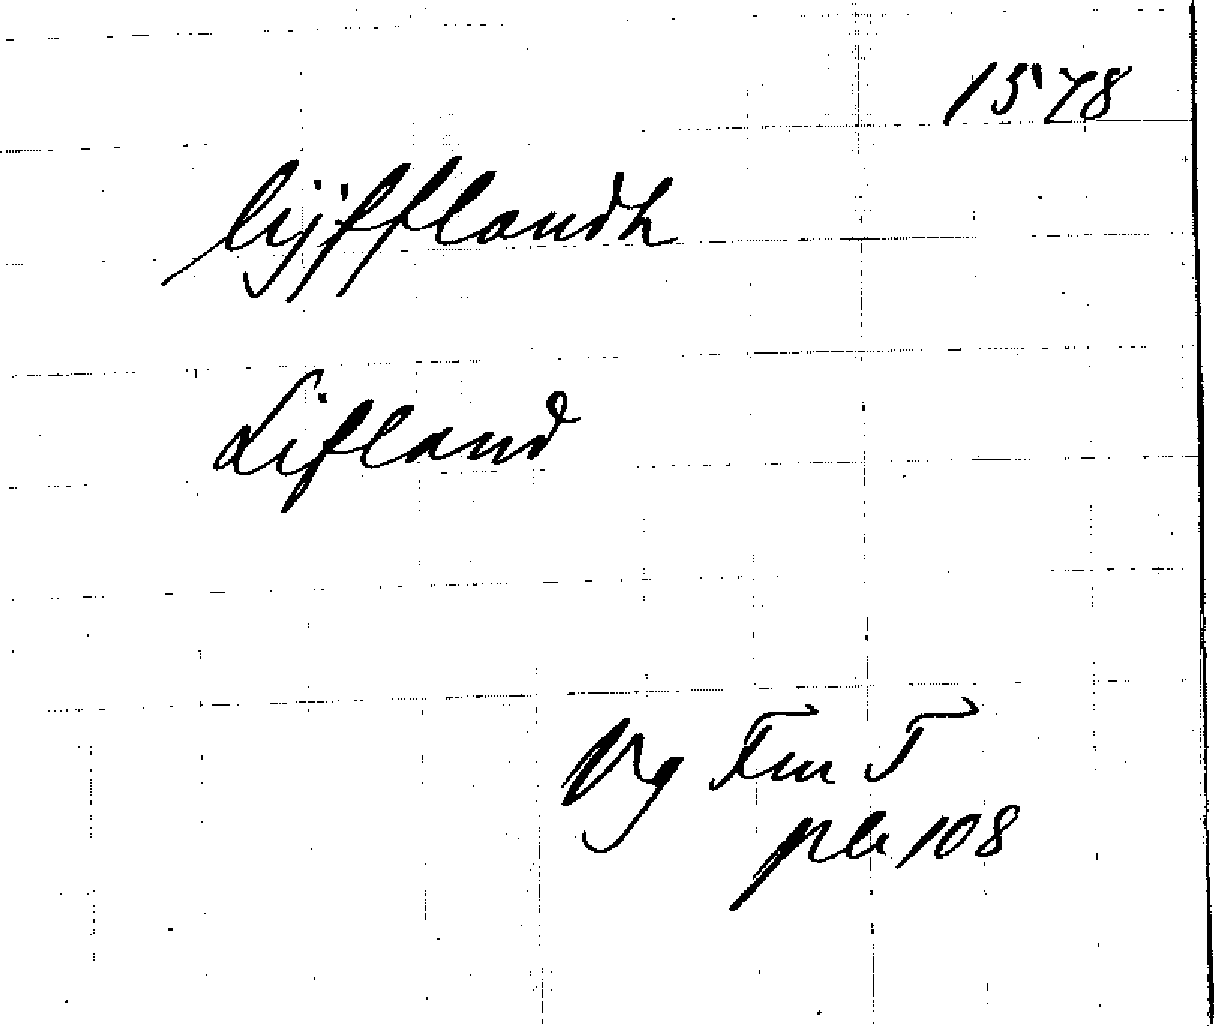 1578
lijfflandh
Lifland
Vg Fm T
ply 108